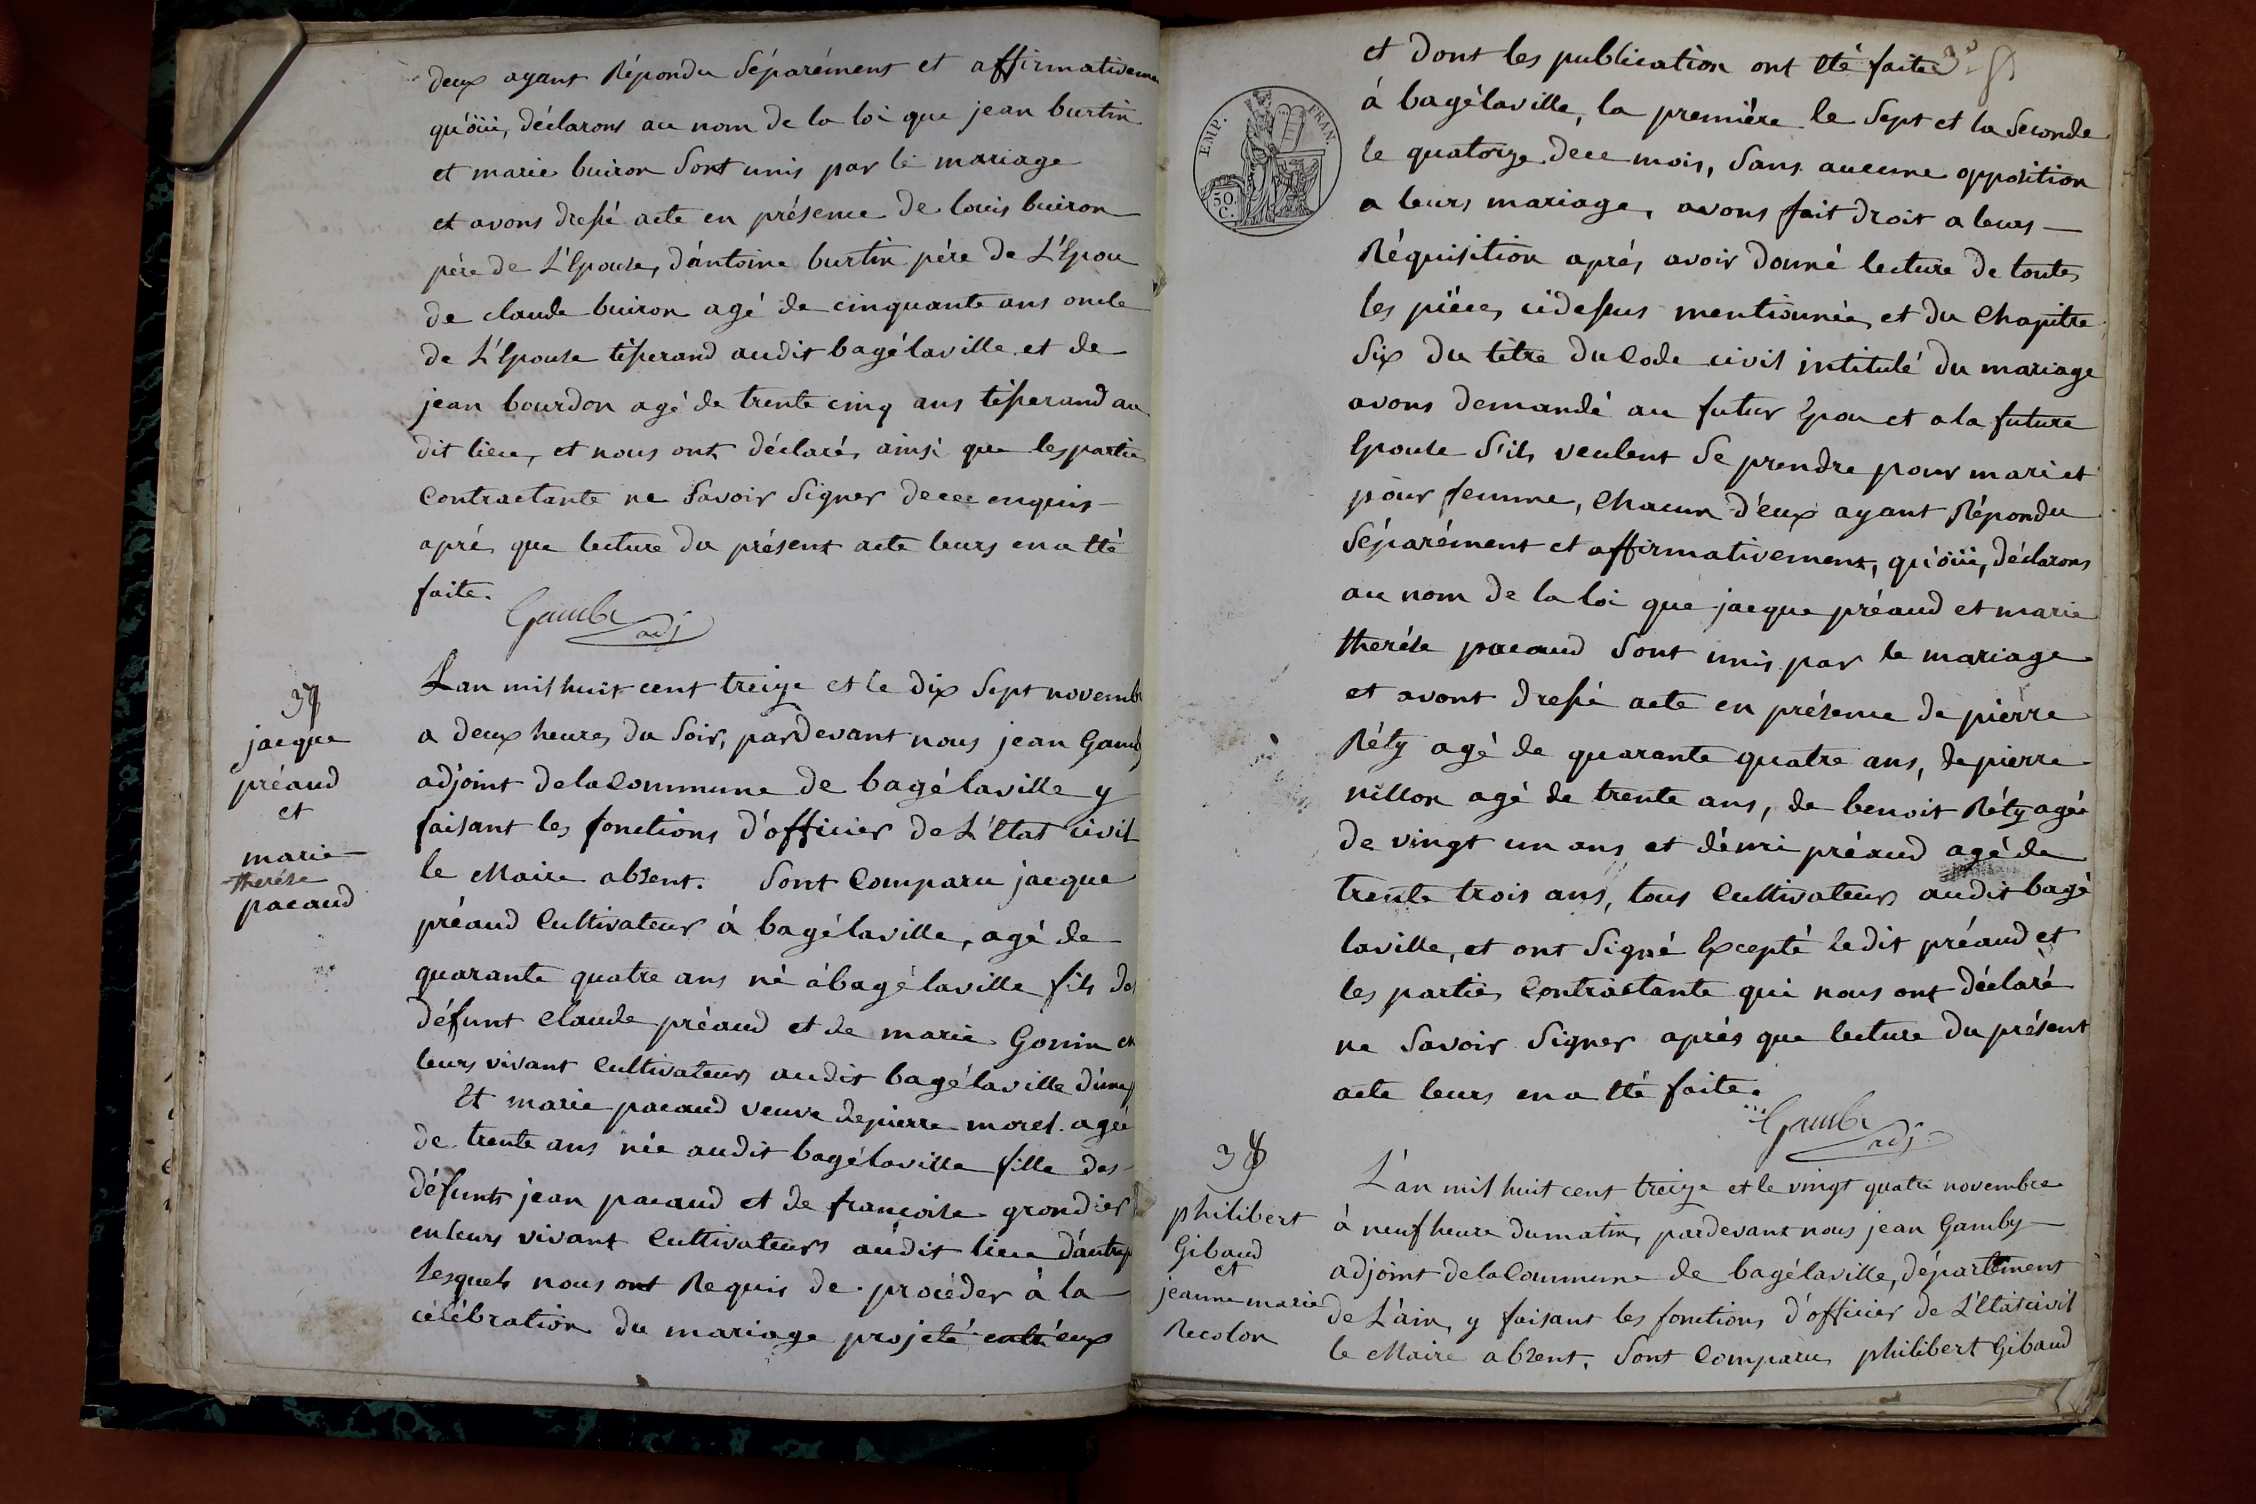 deux ayant Répondu Séparément et affirmativeme
qu'öüi, déclarons au nom de la loi que jean burtin
et marie buiron Sont unis par le mariage
et avons dressé acte en présence de louis buiron
pére de L'Epouse, d'antoine burtin pére de L'Epou
de claude buiron agé de cinquante ans oncle
de L'Epouse tisserand audit bagélaville et de
jean bourdon agé de trente cinq ans tisserand au
dit lieu, et nous ont déclaré, ainsi que les partie
Contractante ne Savoir Signer de ce enquis
aprés que lecture du présent acte leurs en a Eté
faite.
Gamby
adj
37
jacque
préaud
et
marie
therése
pacaud
L'an mil huit cent treize et le dix Sept novemb
a deux heures du Soir, pardevant nous jean Gamb
adjoint de la Commune de bagélaville y
faisant les fonctions d'officier de L'Etat civil
le Maire absent. Sont Comparu jacque
préaud Cultivateur à bagélaville, agé de
quarante quatre ans né à bagélaville fils de
défunt Claude préaud et de marie Gonin en
leurs vivant Cultivateurs audit bagélaville d'une
Et marie pacaud veuve de pierre morel agée
de trente ans née audit bagélaville fille des
défunts jean pacaud et de francoise grondier
en leurs vivant Cultivateurs audit lieu d'autre
Lesquels nous ont Requis de procéder à la
célébration du mariage projeté entr'eux
et dont les publication ont Eté faite
EMP. FRAN.
50 C.
à bagélaville, la premiére le Sept et la Seconde
le quatorze de ce mois, Sans aucune opposition
a leurs mariage, avons fait droit a leurs
Réquisition aprés avoir donné lecture de toutes
les piéces cidessus mentionnée, et du Chapitre
Six du titre du Code civil intitulé du mariage
avons demandé au futur Epou et a la future
Epouse S'ils veulent Se prendre pour mari et
pour femme, Chacun d'eux ayant Répondu
Séparément et affirmativement, qu'öüi, déclarons
au nom de la loi que jacque préaud et marie
therése pacaud Sont unis par le mariage
et avont dressé acte en présence de pierre
Réty agé de quarante quatre ans, de pierre
nillon agé de trente ans, de benoit Réty agée
de vingt un ans et démi préaud agé de
trente trois ans, tous Cultivateurs audit bagé
laville, et ont Signé Excepté ledit préaud et
les partie, Contractante qui nous ont déclaré
ne Savoir Signer aprés que lecture du présent
acte leurs en a Eté faite.
Gamby
adj
38
philibert
Gibaud
et
jeanne marie
Recolon
L'an mil huit cent treize et le vingt quatre novembre
à neuf heure du matin, pardevant nous jean Gamby
adjoint de la Commune de bagélaville, département
de L'ain, y faisant les fonctions d'officier de L'Etat civil
le Maire absent. Sont Comparu philibert Gibaud